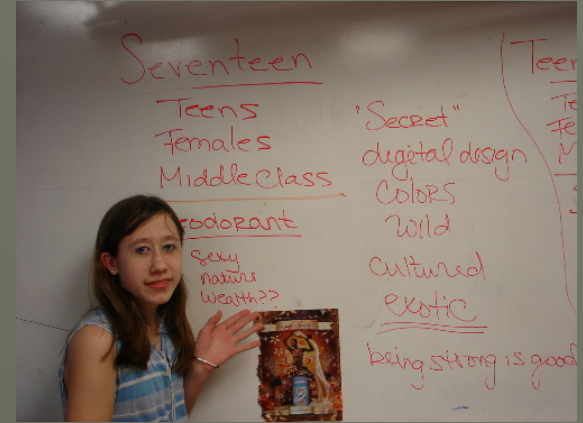 Seventeen
Teens
Females
Middle Class
eodorant
sexy
nature
wealth??
"Secret"
digital design
colors
wild
cultured
exotic
being strong is good
Teen
Te
Fe
M